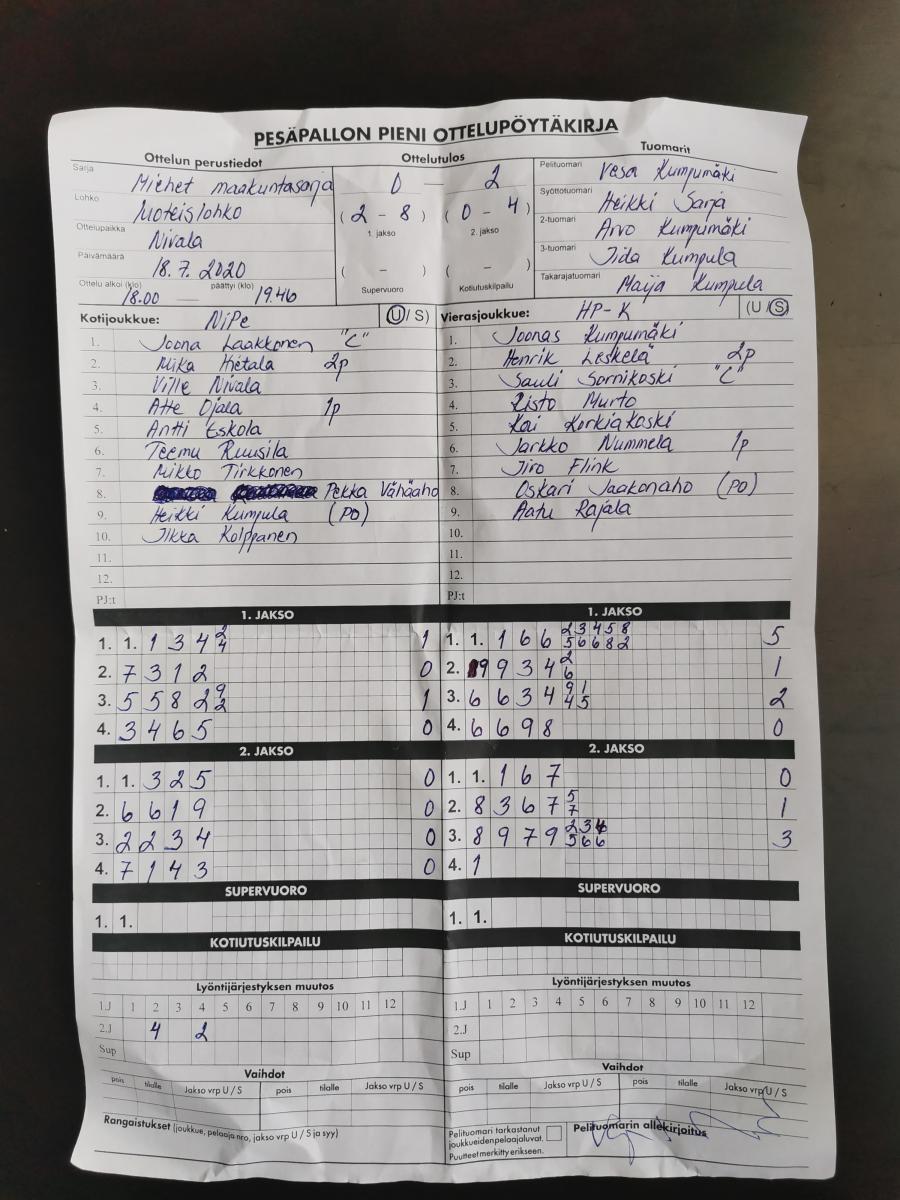 PESÄPALLON PIENI OTTELUPÖYTÄKIRJA
Ottelun perustiedot
Ottelutulos
Tuomarit
Sarja Miehet maakuntasarja
Lohko
Ottelupaikka Nivala
Päivämäärä 18.7.2020
Ottelu alkoi (klo) päättyi (klo)
18.00 — 19.46
0 — 2
( 2 - 8 ) ( 0 - 4 )
1. jakso 2. jakso
( - ) ( - )
Supervuoro Kotiutuskilpailu
Pelituomari Vesa Kumpumäki
Syöttötuomari Heikki Sarja
2-tuomari Arvo Kumpumäki
3-tuomari Iida Kumpula
Takarajatuomari Maija Kumpula
Kotijoukkue: NiPe (U/S)
1. Joona Laakkonen "C"
2. Mika Hietala 2p
3. Ville Nivala
4. Atte Ojala 1p
5. Antti Eskola
6. Teemu Ruusila
7. Mikko Tirkkonen
8. Pekka Vähäaho
9. Heikki Kumpula (PO)
10. Ilkka Kolppanen
11.
12.
PJ:t
Vierasjoukkue: HP-K (U/S)
1. Joonas Kumpumäki
2. Henrik Leskelä 2p
3. Sauli Sornikoski "C"
4. Risto Murto
5. Kai Korkiakoski
6. Jarkko Nummela 1p
7. Jiro Flink
8. Oskari Jaakonaho (PO)
9. Aatu Rajala
10.
11.
12.
PJ:t
1. JAKSO
1. 1. 1 3 4 2 4 1
2. 7 3 1 2 0
3. 5 5 8 2 9 2 1
4. 3 4 6 5 0
2. JAKSO
1. 1. 3 2 5 0
2. 6 6 1 9 0
3. 2 2 3 4 0
4. 7 1 4 3 0
SUPERVUORO
1. 1.
KOTIUTUSKILPAILU
1. JAKSO
1. 1. 1 6 6 2 3 4 5 8 5
5 6 6 8 2
2. 9 9 3 4 2 6 1
3. 6 6 3 4 9 1 2
4 5
4. 6 6 9 8 0
2. JAKSO
1. 1. 1 6 7 0
2. 8 3 6 7 5 7 1
3. 8 9 7 9 2 3 4 3
5 6 6
4. 1
SUPERVUORO
1. 1.
KOTIUTUSKILPAILU
Lyöntijärjestyksen muutos
1.J 1 2 3 4 5 6 7 8 9 10 11 12
2.J 4 2
Sup
Vaihdot
pois tilalle Jakso vrp U / S pois tilalle Jakso vrp U / S
Rangaistukset (joukkue, pelaaja nro, jakso vrp U / S ja syy)
Lyöntijärjestyksen muutos
1.J 1 2 3 4 5 6 7 8 9 10 11 12
2.J
Sup
Vaihdot
pois tilalle Jakso vrp U / S pois tilalle Jakso vrp U / S
Pelituomari tarkastanut
joukkueidenpelaajaluvat.
Puutteet merkitty erikseen.
Pelituomarin allekirjoitus